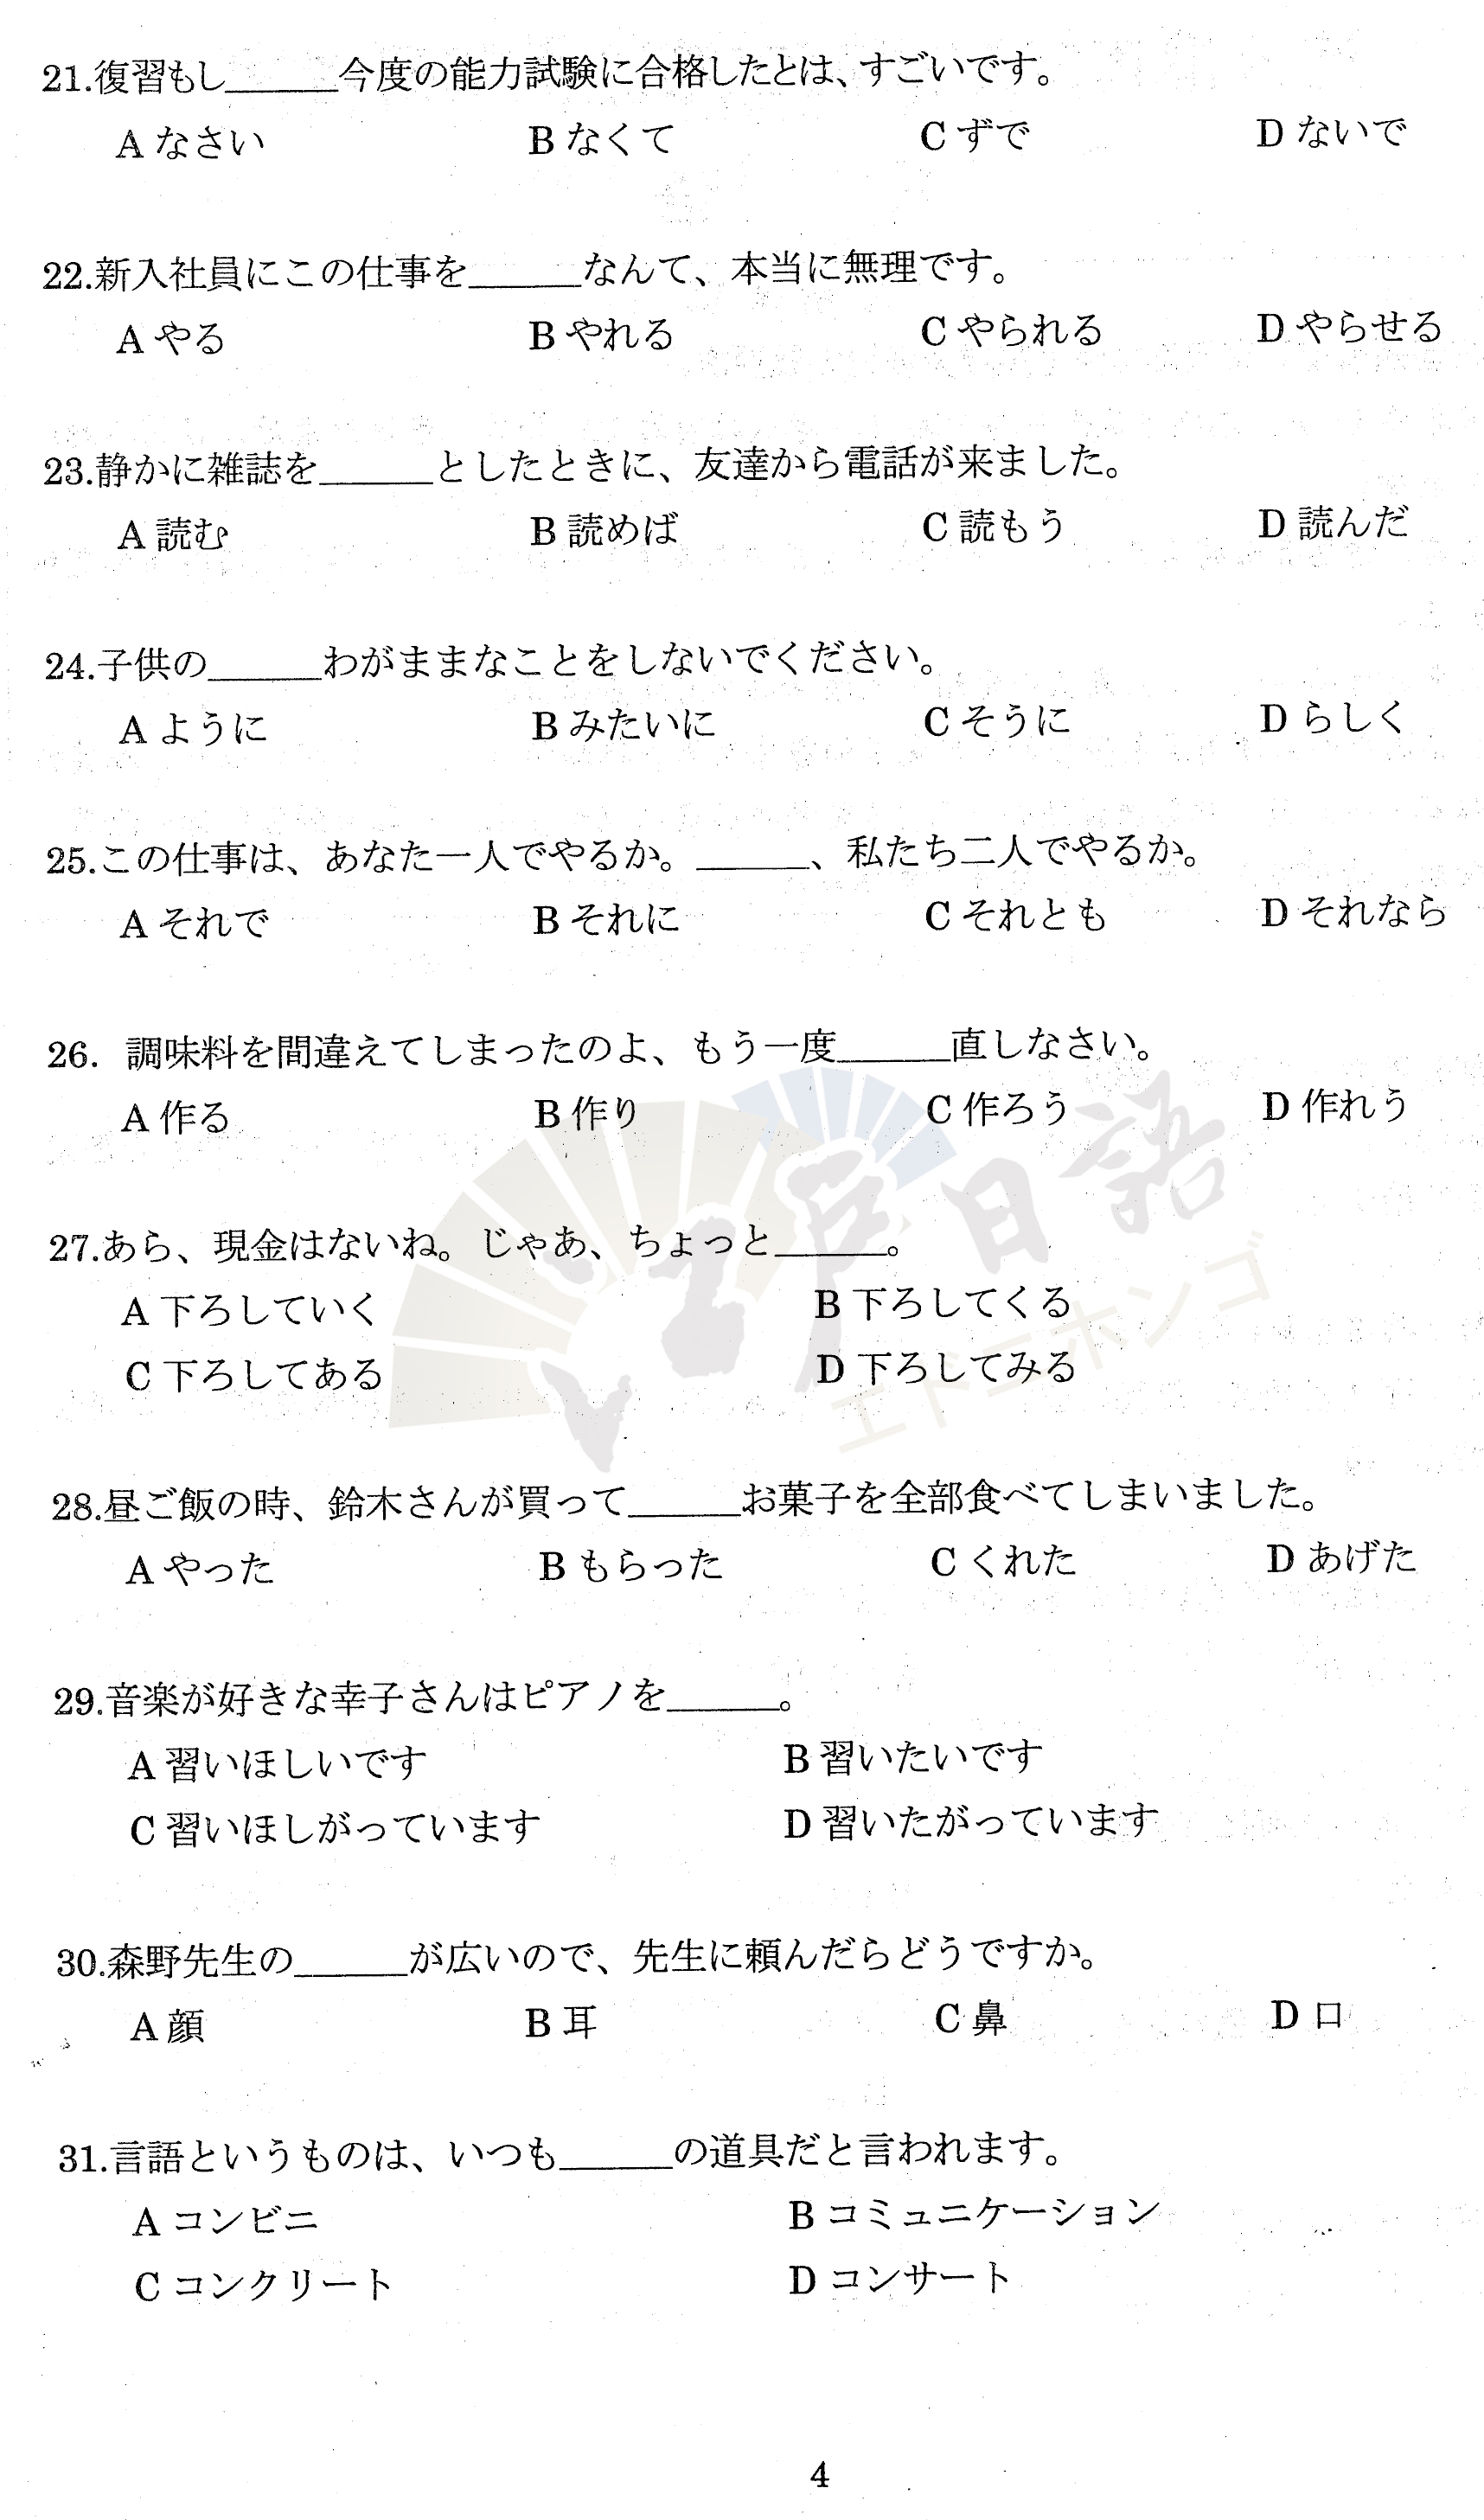 21.復習もし______今度の能力試験に合格したとは、すごいです。
A なさい B なくて C ずで D ないで
22.新入社員にこの仕事を______なんて、本当に無理です。
A やる B やれる C やられる D やらせる
23.静かに雑誌を______としたときに、友達から電話が来ました。
A 読む B 読めば C 読もう D 読んだ
24.子供の______わがままなことをしないでください。
A ように B みたいに C そうに D らしく
25.この仕事は、あなた一人でやるか。______、私たち二人でやるか。
A それで B それに C それとも D それなら
26. 調味料を間違えてしまったのよ、もう一度______直しなさい。
A 作る B 作り C 作ろう D 作れう
27.あら、現金はないね。じゃあ、ちょっと______。
A 下ろしていく B 下ろしてくる
C 下ろしてある D 下ろしてみる
28.昼ご飯の時、鈴木さんが買って______お菓子を全部食べてしまいました。
A やった B もらった C くれた D あげた
29.音楽が好きな幸子さんはピアノを______。
A 習いほしいです B 習いたいです
C 習いほしがっています D 習いたがっています
30.森野先生の______が広いので、先生に頼んだらどうですか。
A 顔 B 耳 C 鼻 D 口
31.言語というものは、いつも______の道具だと言われます。
A コンビニ B コミュニケーション
C コンクリート D コンサート
4
江戸日語
エドニホンゴ